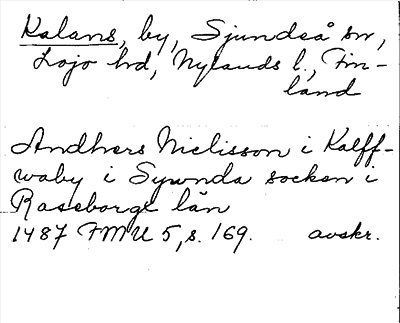 Kalans, by, Sjundeå sn,
Lojo hd, Nylands l., Fin-
land
Andhers Nielisson i Kalff-
waby i Sywnda socken i
Raseborgs län
1487 FMU 5, s. 169. avskr.